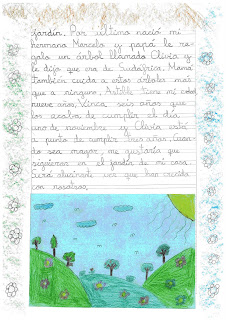 jardín. Por último nació mi
hermano Marcelo y papá le re-
galo un árbol llamado Clivia y
le dijo que era de Sudáfrica. Mamá
también cuida a estos árboles más
que a ninguno. Astilbe tiene mi edad
nueve años, Vinca seis años que
los acaba de cumplir el día
uno de noviembre y Clivia está
a punto de cumplir tres años. Cuan-
do sea mayor, me gustaría que
siguieran en el jardín de mi casa.
Será alucinante ver que han crecido
con nosotros.